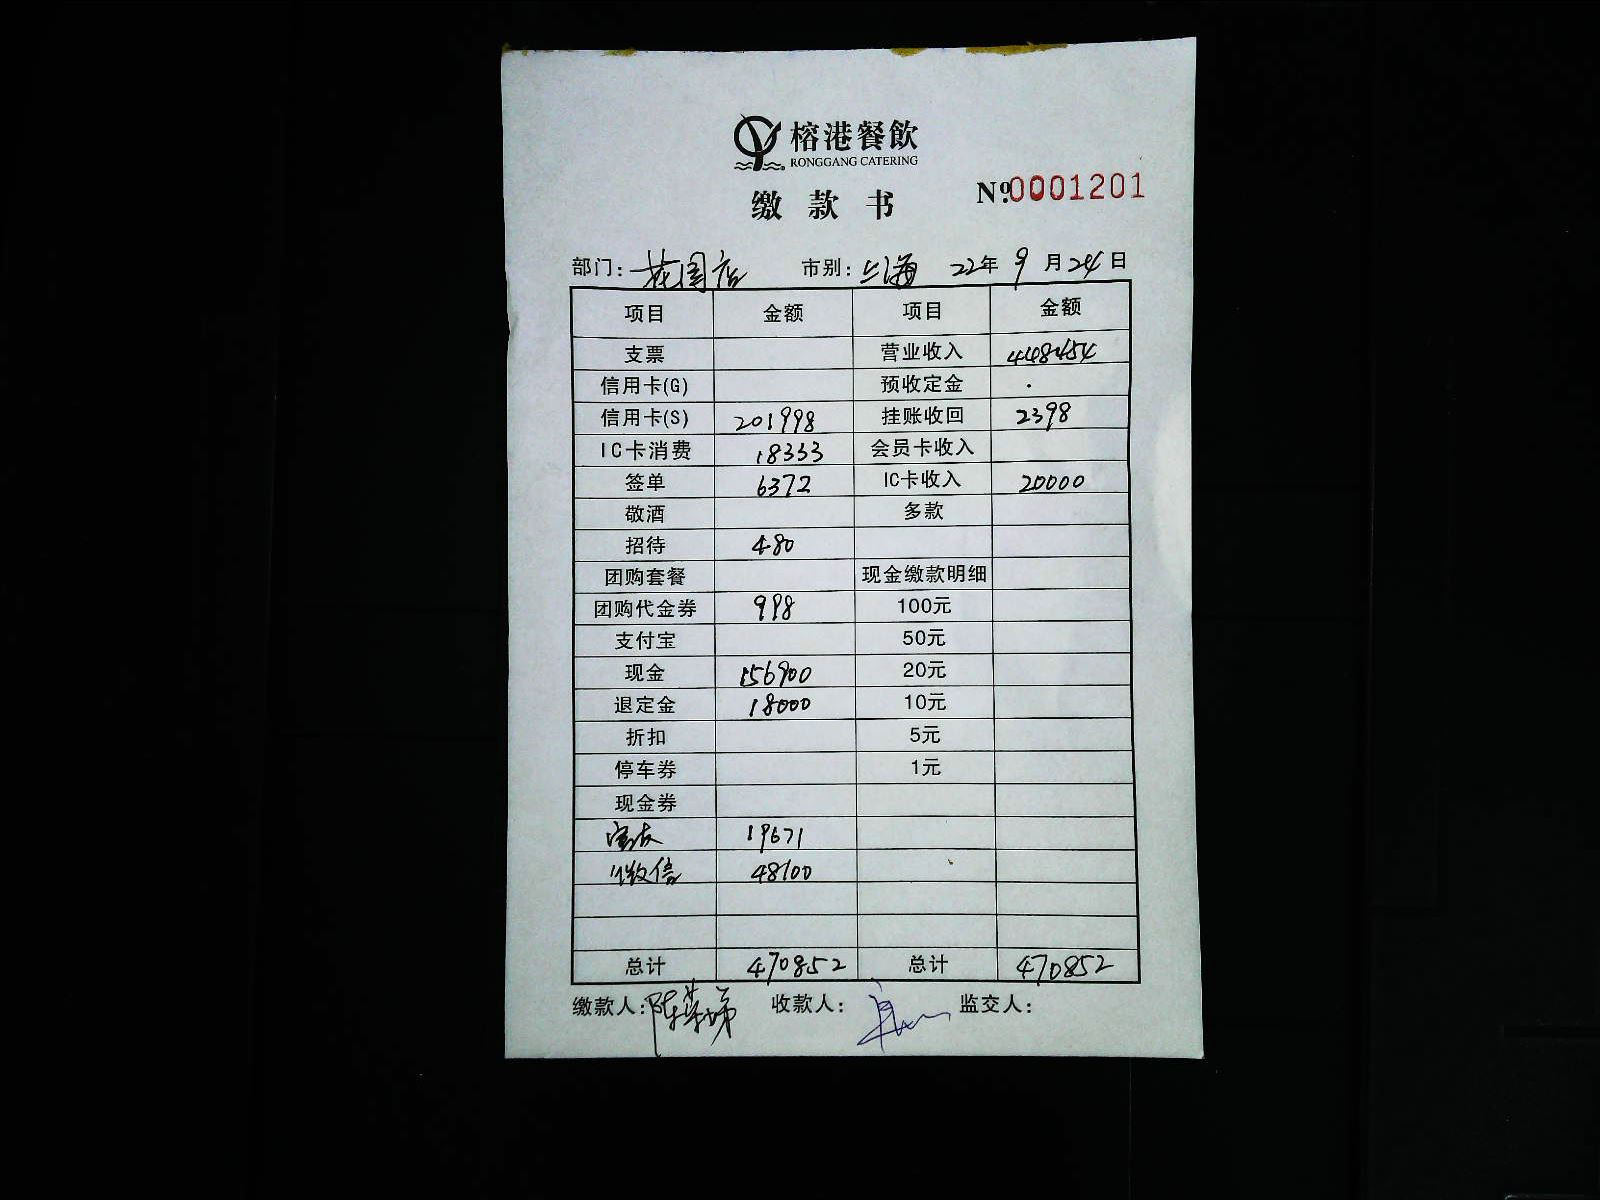 榕港餐飲
RONGGANG CATERING
缴款书 Nº0001201
部门：花园店 市别：上海 22年9月24日
项目 金额 项目 金额
支票 营业收入 448454
信用卡(G) 预收定金
信用卡(S) 201998 挂账收回 2398
IC卡消费 18333 会员卡收入
签单 6372 IC卡收入 20000
敬酒 多款
招待 480
团购套餐 现金缴款明细
团购代金券 998 100元
支付宝 50元
现金 156900 20元
退定金 18000 10元
折扣 5元
停车券 1元
现金券
19671
微信 48100
总计 470852 总计 470852
缴款人：陈荣娣 收款人： 监交人：